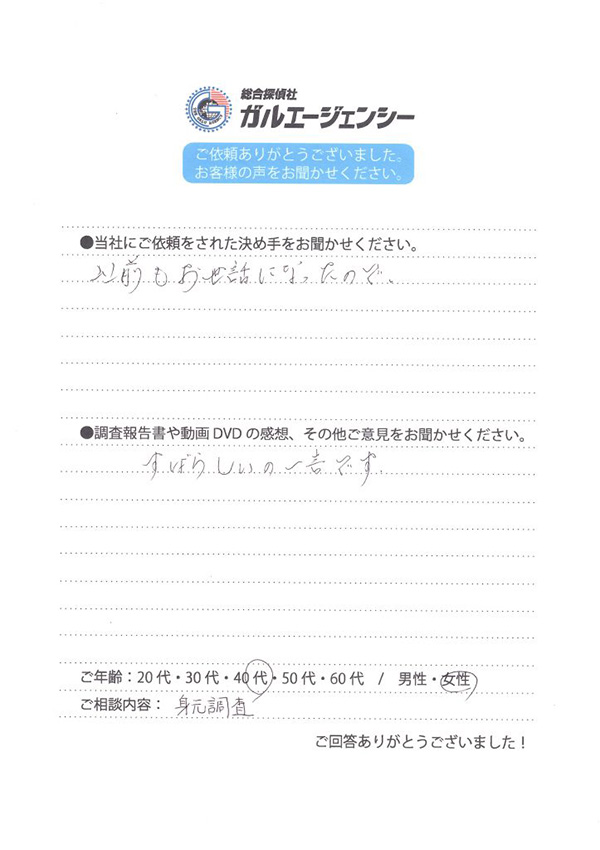 総合探偵社
ガルエージェンシー
ご依頼ありがとうございました。
お客様の声をお聞かせください。
●当社にご依頼をされた決め手をお聞かせください。
以前もお世話になったので、
●調査報告書や動画DVDの感想、その他ご意見をお聞かせください。
すばらしいの一言です。
ご年齢：20代・30代・40代・50代・60代 / 男性・女性
ご相談内容： 身元調査
ご回答ありがとうございました！